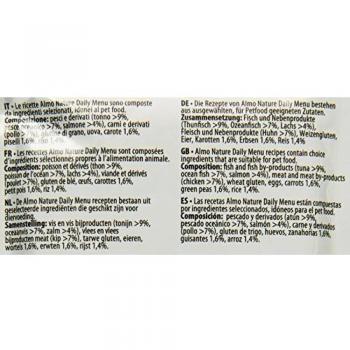 IT • Le ricette Almo Nature Daily Menu sono composte
da ingredienti selezionati, idonei al pet food.
Composizione: pesci e derivati (tonno >9%,
pesce oceanico >7%, salmone >4%), carni e derivati
(pollo >7%), glutine di grano, uova, carote 1,6%,
piselli 1,6%, riso 1,4%.
FR • Les recettes Almo Nature Daily Menu sont composées
d'ingrédients sélectionnés propres à l'alimentation animale.
Composition: poisson et dérivés (thon >9%,
poisson de l'océan >7%, lachs >4%), viande et dérivés
(poulet >7%), gluten de blé, œufs, carottes 1,6%,
petit pois 1,6%, riz 1,4%.
NL • De Almo Nature Daily Menu recepten bestaan uit
geselecteerde ingrediënten die geschikt zijn voor
diervoeding.
Samenstelling: vis en vis bijproducten (tonijn >9%,
oceaanvis >7%, zalm >4%), vlees en vlees
bijproducten meat (kip >7%), tarwe gluten, eieren,
wortels 1,6%, erwten 1,6%, rijst 1,4%.
DE • Die Rezepte von Almo Nature Daily Menu bestehen
aus ausgewählten, für Petfood geeigneten Zutaten.
Zusammensetzung: Fisch und Nebenprodukte
(Thunfisch >9%, Ozeanfisch >7%, Lachs >4%),
Fleisch und Nebenprodukte (Huhn >7%), Weizengluten,
Eier, Karotten 1,6%, Erbsen 1,6%, Reis 1,4%.
GB • Almo Nature Daily Menu recipes contain choice
ingredients that are suitable in pet food.
Composition: fish and fish by-products (tuna >9%,
ocean fish >7%, salmon >4%), meat and meat by-products
(chicken >7%), wheat gluten, eggs, carrots 1,6%,
green peas 1,6%, rice 1,4%.
ES • Las recetas Almo Nature Daily Menu están compuestas
por ingredientes seleccionados, idóneos para el pet food.
Composición: pescado y derivados (atún >9%,
pescado oceánico >7%, salmón >4%), carne y derivados
(pollo >7%), gluten de trigo, huevos, zanahorias 1,6%,
guisantes 1,6%, arroz 1,4%.